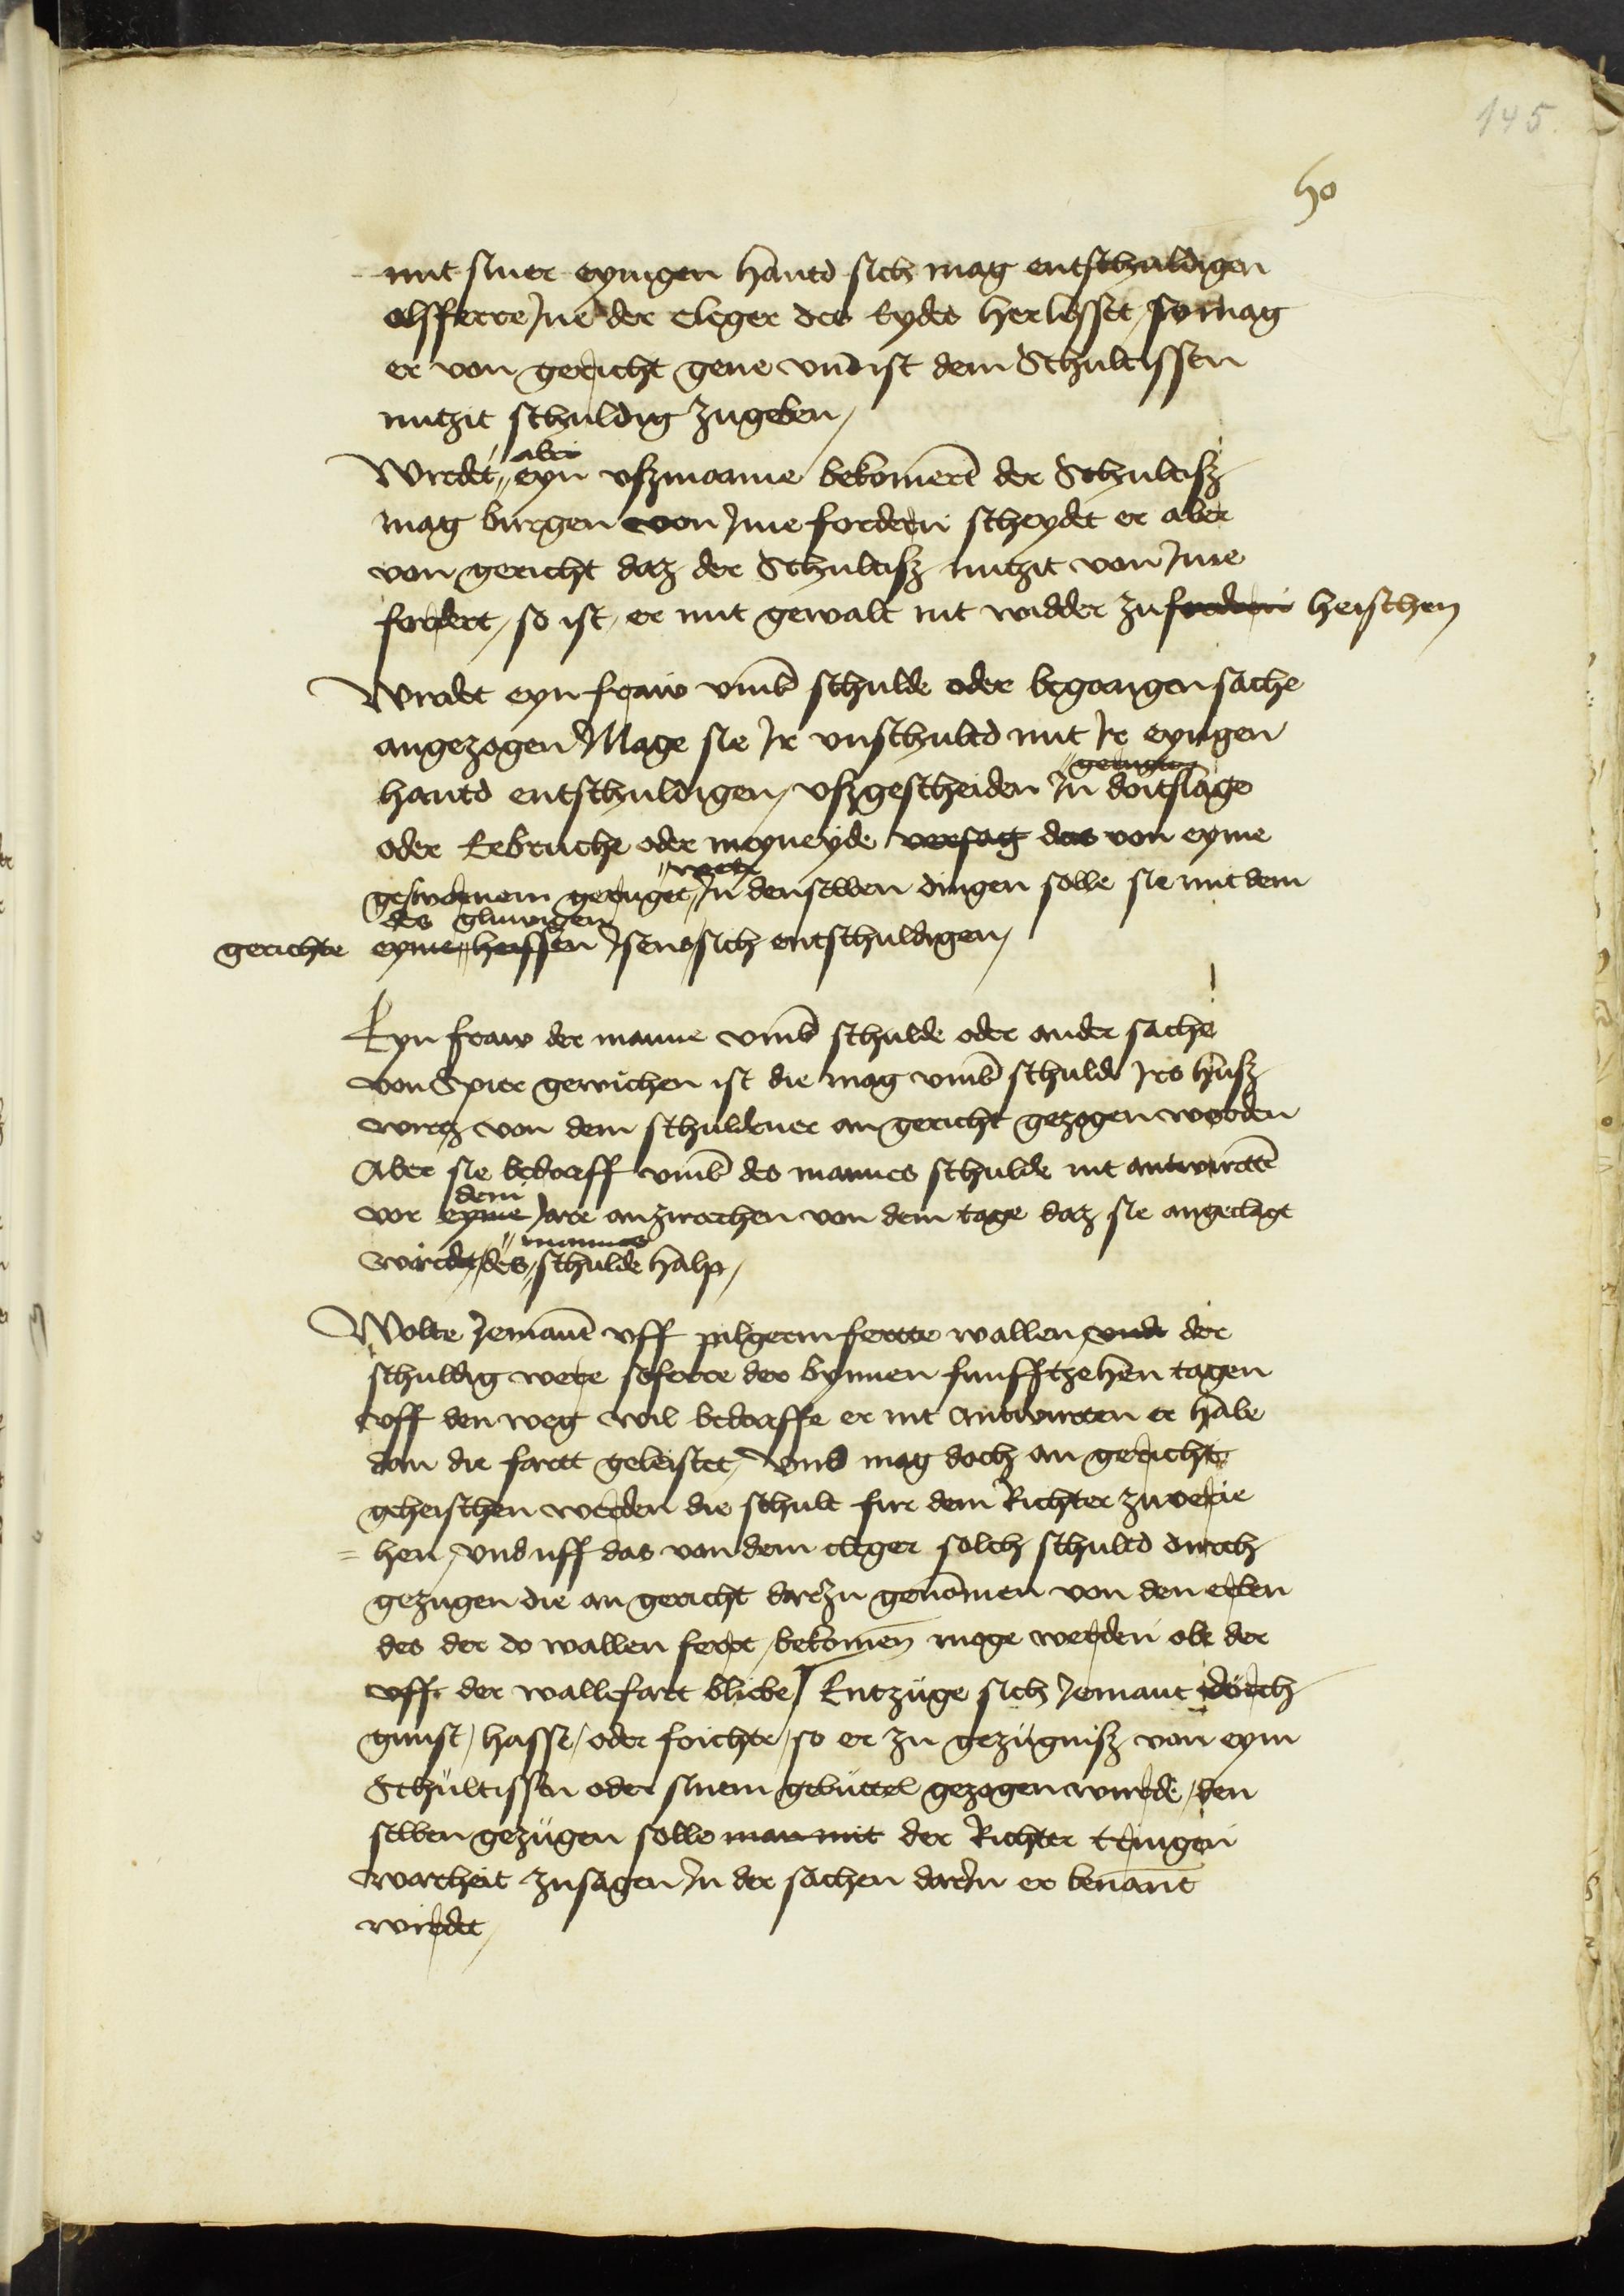 145.
50
mit siner eynigen hantd sich mag entschuldigen
alsfferre Jne der cleger des Eydes herlesset / so mag
er von gericht gene vnd ist dem Schultissen
nutzit schuldig zugeben /
aber
Wirdet eyn vszmanne bekomert der Schultisz
mag burgen von Jme fordern scheydet er aber
von gericht daz der Schultisz nutzit von Jme
fordert / so ist er mit gewalt nit widder zu fordern heischen
Wirdet eyn frauw vmb schulde oder begangen sache
angezogen Mage sie Jr vnschultd mit Jr eynigen
hantd entschuldigen / vszgescheiden Jn doitslage
oder Eebruche oder meyneyde versag das von eyme
geswornem geruget / Jn denselben dingen solle sie mit dem
des gluwigen
gerichte eyme heissen Jsens sich entschuldigen /
Eyn frauw der manne vmb schulde oder ander sache
von Spier gewichen ist die mag vmb schuld Jrs husz
wirtz von dem schuldener an gericht gezogen werden
Aber sie bedarff vmb des mannes schulde nit antwurtten
dem
vor eyme Jare anzurechen von dem tage daz sie angeclagt
mannes
wirdet / des schulde halp /
Wolte Jemant vff pilgerin fertte wallen vnd der
schuldig were soferre der bynnen funfftzehen tagen
vff den weg wil bedarffe er nit antwurten er habe
dan die fartt geleistet / Vnd mag doch an gericht
geheischen werden die schult fur dem Richter zuverie
= hen / vnd uff das von dem cleger solch schultd durch
gezugen die an gericht darzu genomen von den erben
des der do wallen fert / bekomen moge werden obe der
vff der wallefart bliebe / Entzuge sich Jemant durch
gunst / hasse / oder forchte / so er zu gezugnisz von eym
Schultissen oder sinem gebuttel gezogen wurde / den
selben gezugen solle man mit der Richter tringen
warheit zusagen Jn der sachen darJn er benant
wirdet /